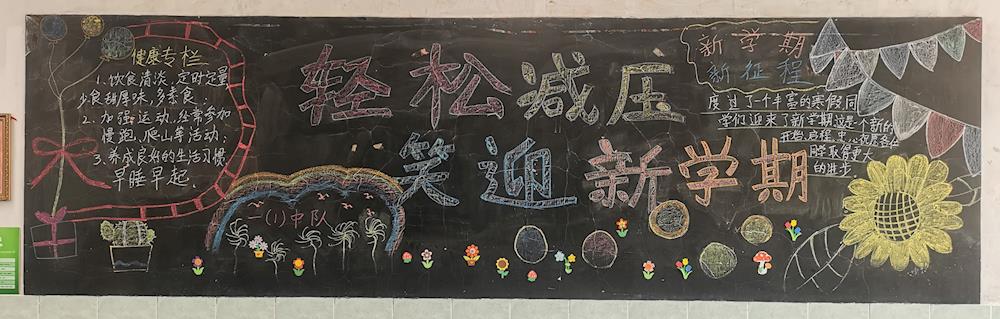 健康专栏
1.饮食清淡,定时定量
少食甜厚味,多素食;
2.加强运动,经常参加
慢跑、爬山等活动;
3.养成良好的生活习惯,
早睡早起.
一(1)中队
轻松减压
笑迎新学期
新学期
新征程
度过了一个丰富的寒假同
学们迎来了新学期这是一个新的
同学取得更大
的进步.